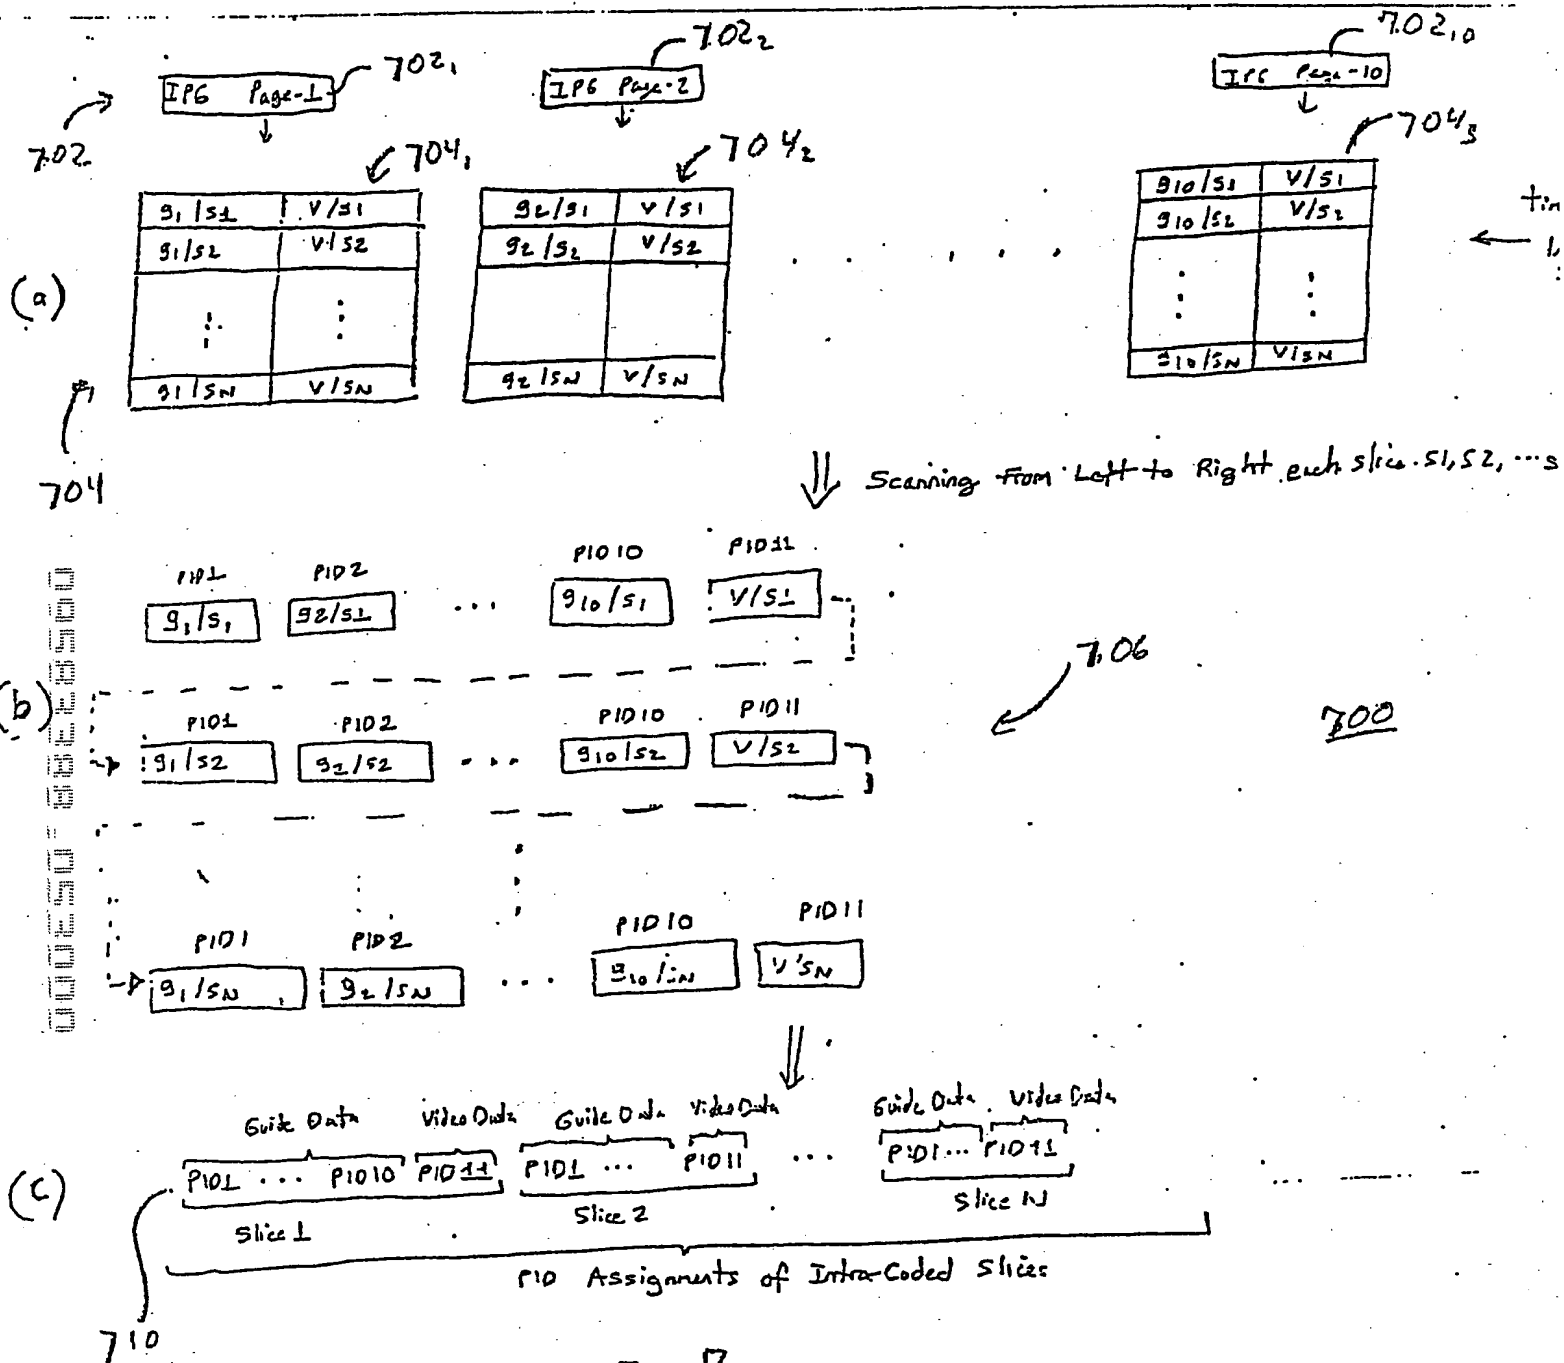 702₁ 702₂ 702₁₀
IPG Page-1 IPG Page-2 IPG Page-10
702 704₁ 704₂ 704₃
g1/s1 V/s1 g2/s1 V/s1 g10/s1 V/s1
g1/s2 V/s2 g2/s2 V/s2 g10/s2 V/s2
(a)
g1/sN V/sN g2/sN V/sN g10/sN V/sN
704
Scanning From Left to Right each slice. S1, S2, ...s
PID1 PID2 PID10 PID11
g1/s1 g2/s1 ... g10/s1 V/s1
706
(b)
PID1 PID2 PID10 PID11
g1/s2 g2/s2 ... g10/s2 V/s2
700
PID1 PID2 PID10 PID11
g1/sN g2/sN ... g10/sN V/sN
Guide Data Video Data Guide Data Video Data Guide Data Video Data
(c)
PID1 ... PID10 PID11 PID1 ... PID11 ... PID1... PID11
Slice 1 Slice 2 Slice N
PID Assignments of Intra-Coded Slices
710